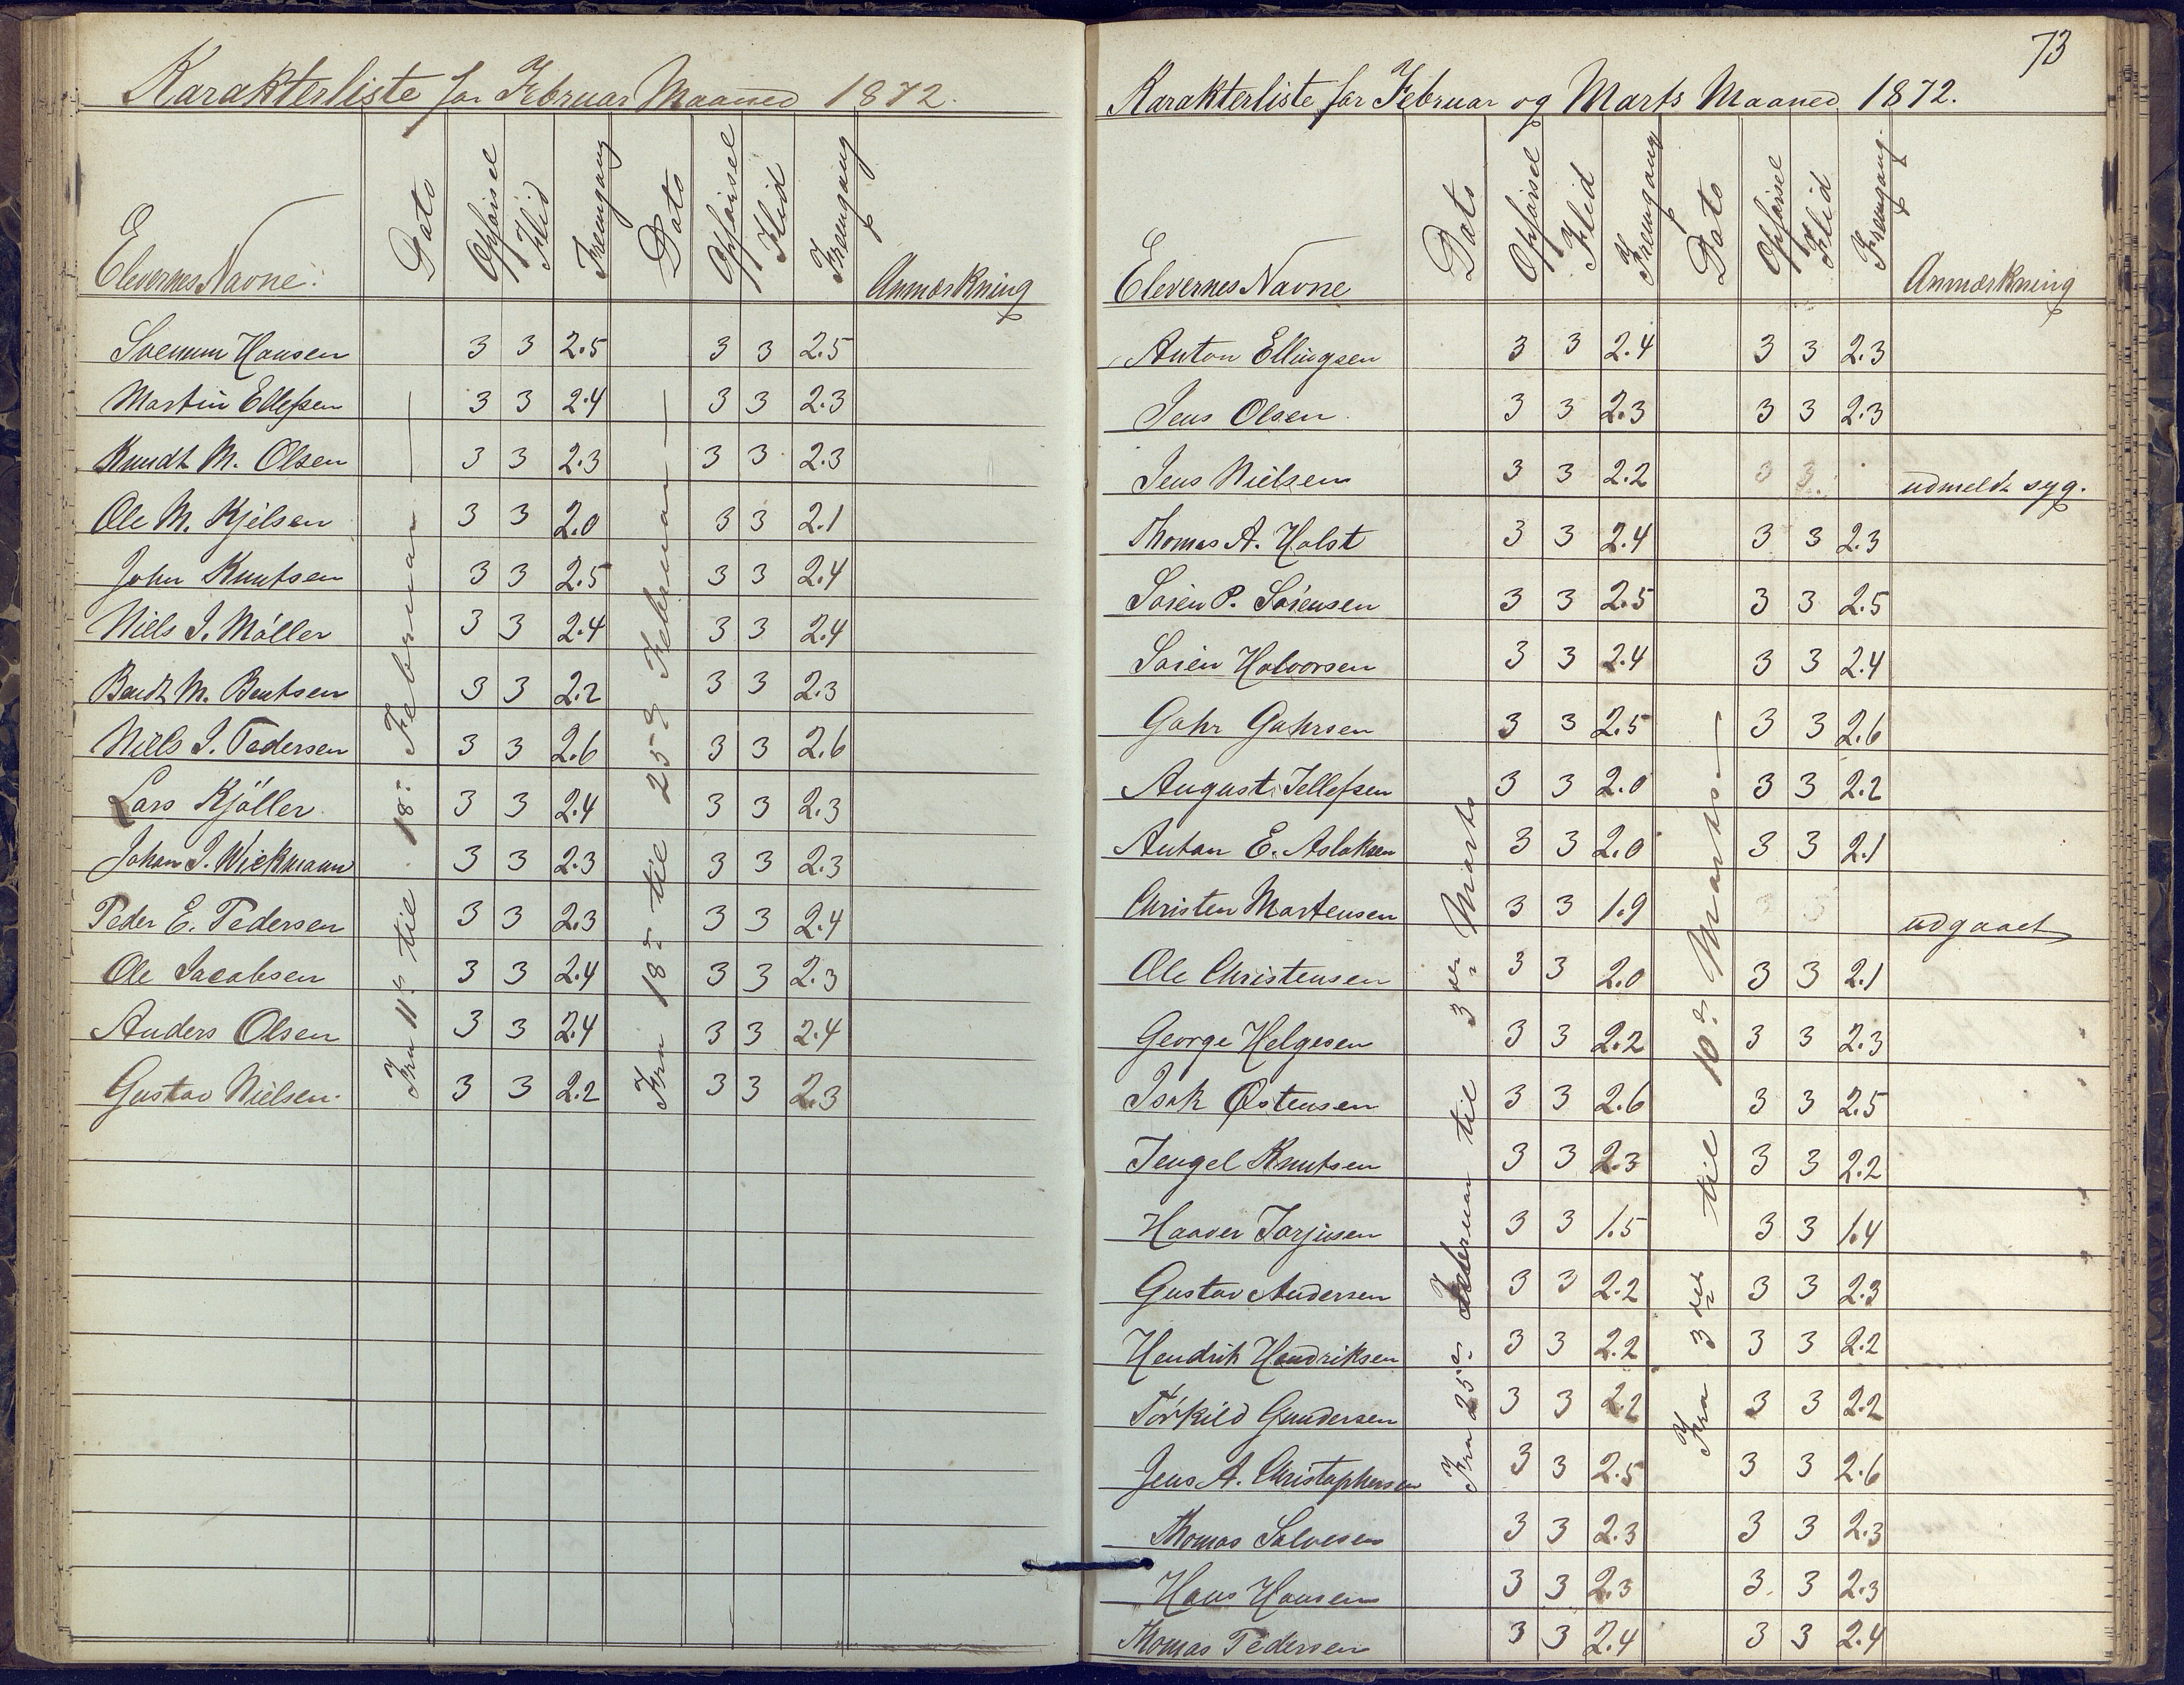 Karakterliste for Februar Maaned 1872.
Elevernes Navne: Dato Opførsel Flid Fremgang Dato Opførsel Flid Fremgang Anmærkning
Fra 11te til 18de Februar —
Fra 18de til 25de Februar —
Hansen 3 3 2.5 3 3 2.5
Martin Ellefsen 3 3 2.4 3 3 2.3
Knudt M. Olsen 3 3 2.3 3 3 2.3
Ole M. Kjelsen 3 3 2.0 3 3 2.1
John Knutsen 3 3 2.5 3 3 2.4
Niels J. Møller 3 3 2.4 3 3 2.4
Bendt M. Bentsen 3 3 2.2 3 3 2.3
Niels J. Pedersen 3 3 2.6 3 3 2.6
Lars Kjøller 3 3 2.4 3 3 2.3
Johan J. Wiekmann 3 3 2.3 3 3 2.3
Peder E. Pedersen 3 3 2.3 3 3 2.4
Ole Jacobsen 3 3 2.4 3 3 2.3
Anders Olsen 3 3 2.4 3 3 2.4
Gustav Nielsen 3 3 2.2 3 3 2.3
73
Karakterliste for Februar og Marts Maaned 1872.
Elevernes Navne Dato Opførsel Flid Fremgang Dato Opførsel Flid Fremgang. Anmærkning
Fra 25de Februar til 3die Marts
Fra 3die til 10de Marts —
Anton Ellingsen 3 3 2.4 3 3 2.3
Jens Olsen 3 3 2.3 3 3 2.3
Jens Nielsen 3 3 2.2 3 3 udmeldt syg.
Thomas A. Holst 3 3 2.4 3 3 2.3
Søren P. Sørensen 3 3 2.5 3 3 2.5
Søren Halvorsen 3 3 2.4 3 3 2.4
Gahr Gahrsen 3 3 2.5 3 3 2.6
August Tellefsen 3 3 2.0 3 3 2.2
Anton E. Aslaksen 3 3 2.0 3 3 2.1
Christen Martensen 3 3 1.9 3 3 udgaaet
Ole Christensen 3 3 2.0 3 3 2.1
George Helgesen 3 3 2.2 3 3 2.3
Isak Østensen 3 3 2.6 3 3 2.5
Tengel Knutsen 3 3 2.3 3 3 2.2
Haaver Tarjusen 3 3 1.5 3 3 1.4
Gustav Andersen 3 3 2.2 3 3 2.3
Hendrik Hendriksen 3 3 2.2 3 3 2.2
Tørkild Gundersen 3 3 2.2 3 3 2.2
Jens A. Christophersen 3 3 2.5 3 3 2.6
Thomas Salvesen 3 3 2.3 3 3 2.3
Hans Hansen 3 3 2.3 3. 3 2.3
Thomas Pedersen 3 3 2.4 3 3 2.4